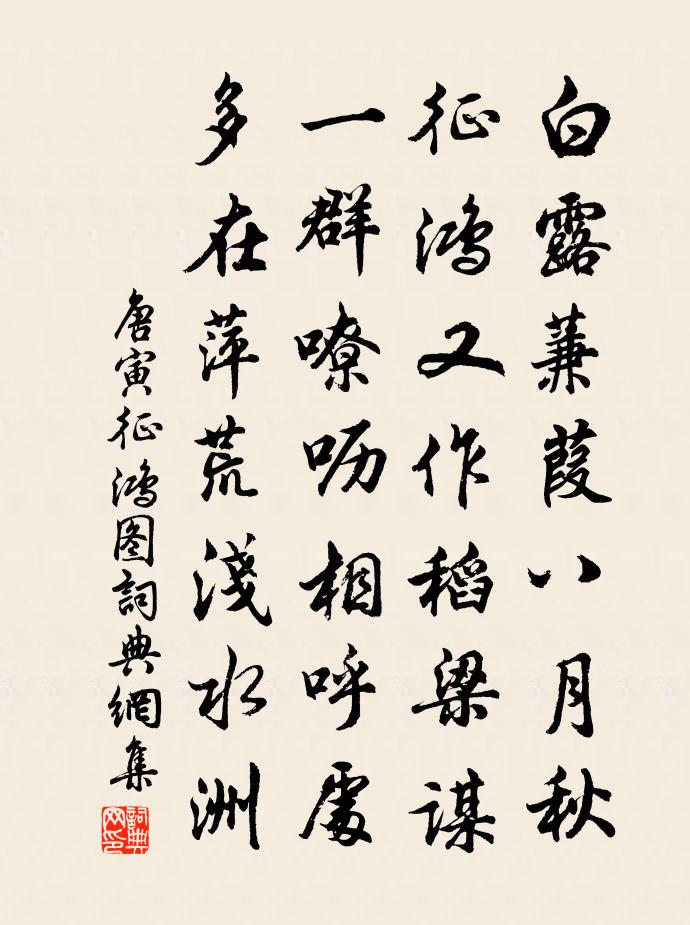 白露蒹葭八月秋
征鸿又作稻梁謀
一群嘹呖相呼處
多在萍荒淺水洲
唐寅征鸿图詞典網集
詞典
网印